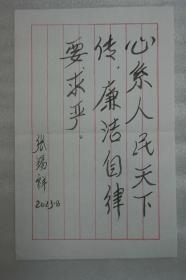 心系人民天下
传，廉洁自律
要求严。
张锡祥
2023.8